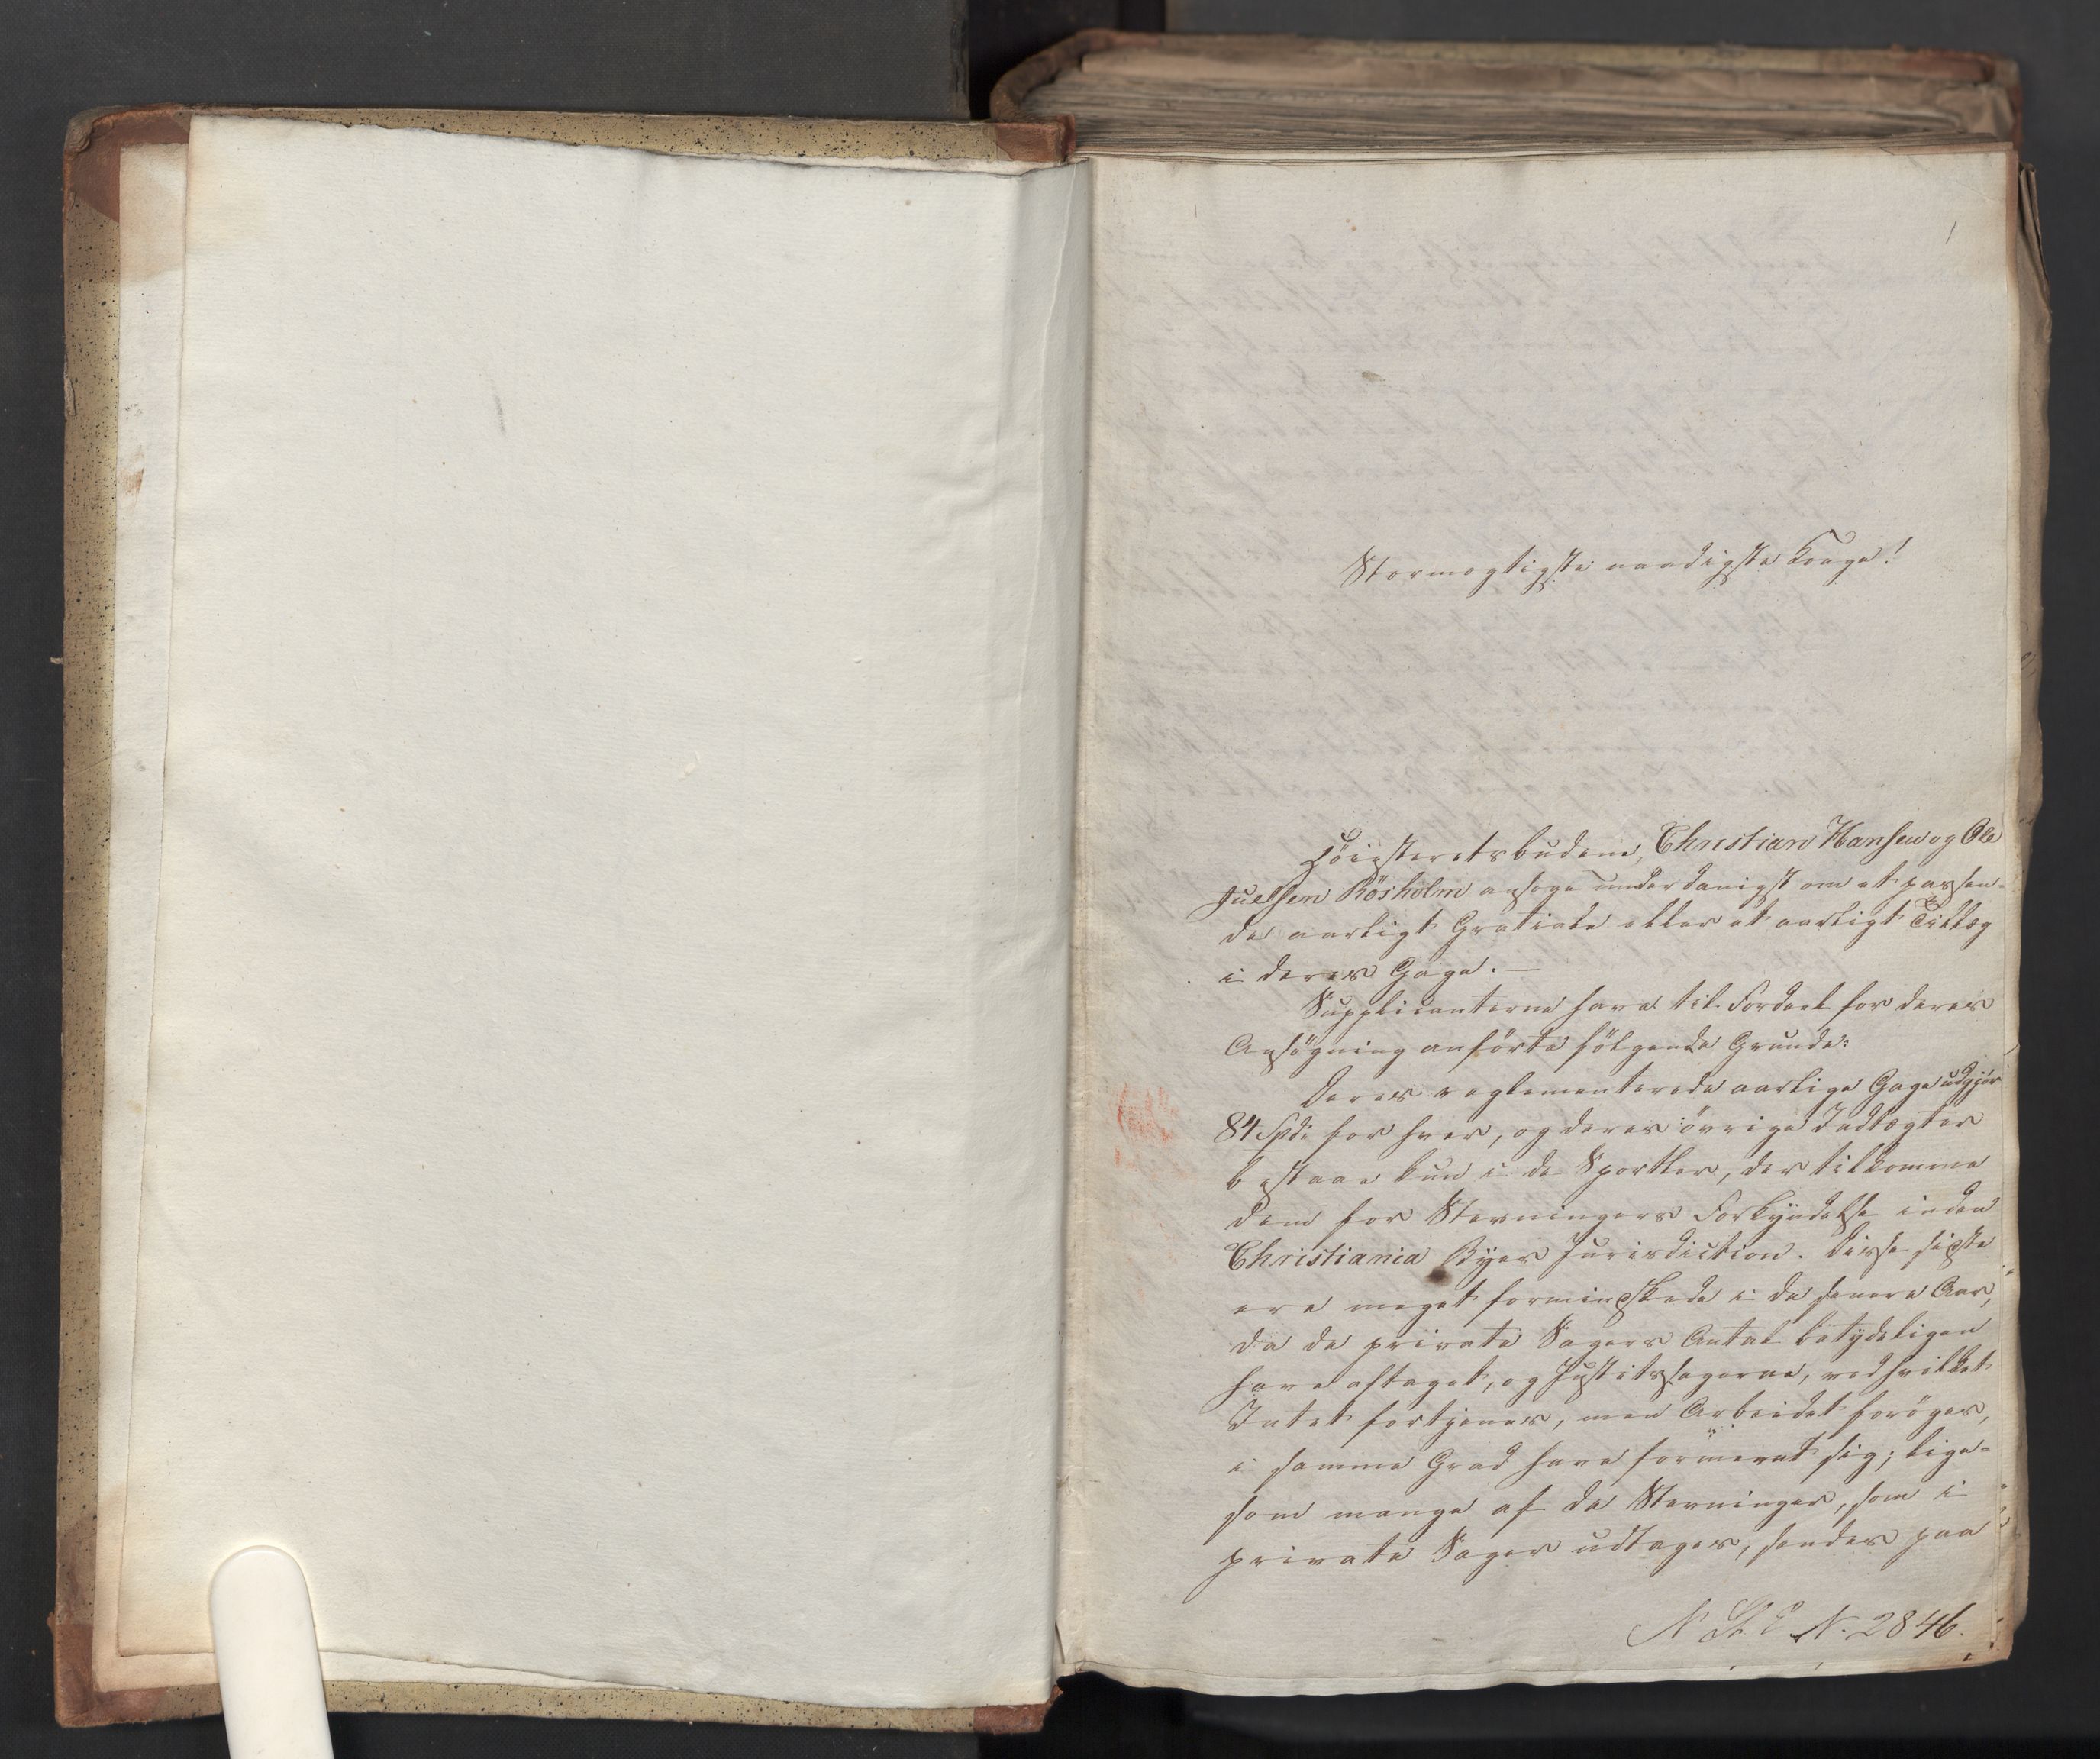 1
Stormægtigste naadigste Konge!
Höiesteretsbudene, Christian Hansen og Ole
Juelsen Rösholm ansøge underdanigst om et passen-
de aarligt Gratiale eller et aarligt Tillæg
i deres Gage. —
Supplicanterne have til Fordeel for deres
Ansögning anförte fölgende Grunde:
Deres reglementerede aarlige Gage udgjör
84 Spd. for hver, og deres övrige Indtægter
bestaae kun i de Sportler, der tilkomme
dem for Stevningers Forkyndelse inden
Christiania Byes Jurisdiction. Disse sidste
ere meget formindskede i de senere Aar,
da de private Sagers Antal betydeligen
have aftaget, og Justitssagerne, ved hvilket
Intet fortjenes, men Arbeidet foröges,
i samme Grad have formeret sig; lige-
som mange af de Stevninger, som i
private Sager udtages, sendes paa
N St E N. 2846.